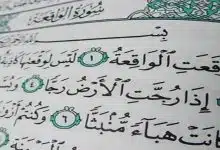 سُورَةُ الْوَاقِعَةِ
بِسْـ
قَعَتِ ٱلْوَاقِعَةُ ١ لَيْسَ لِوَقْعَتِهَا كَاذِ
إِذَا رُجَّتِ ٱلْأَرْضُ رَجًّا ٤ وَبُسَّ
انَتْ هَبَآءً مُّنۢبَثًّا ٦ وَكُنتُمْ أَزْوَ